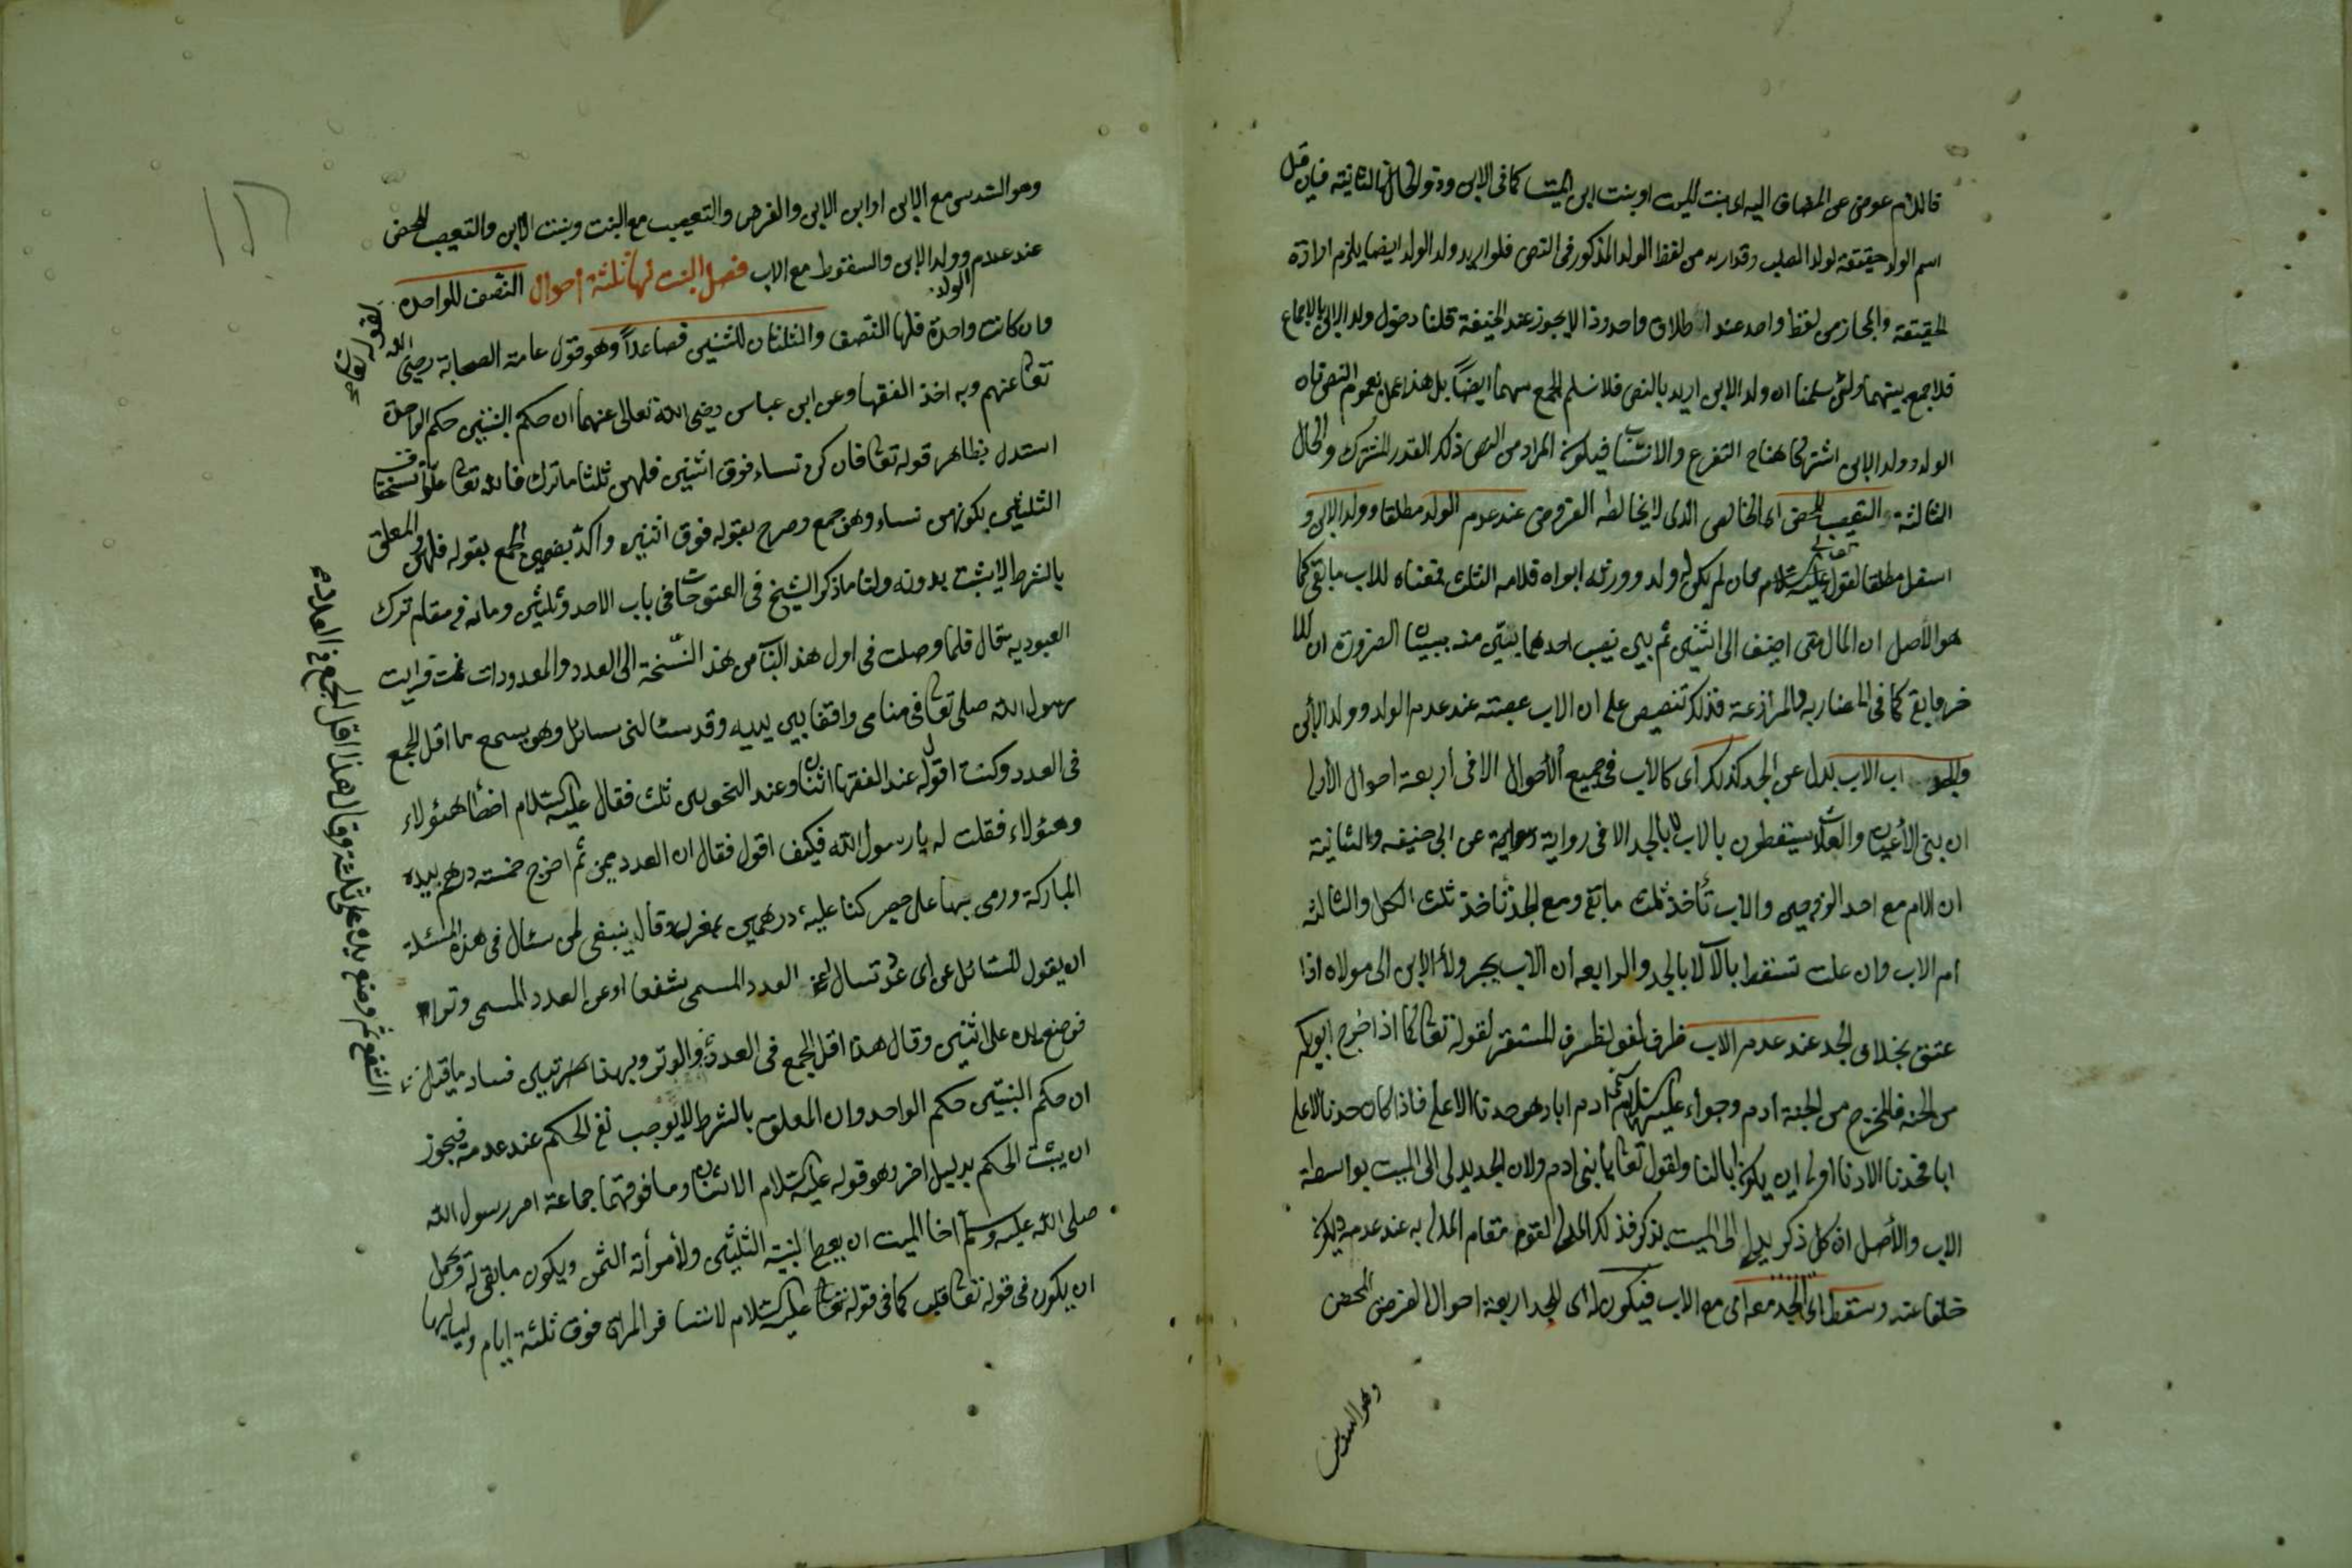 فاللام عوض عن المضاف اليه اى بنت الميت او بنت ابن الميت كما فى الابن وذو الحالة الثانية فان قيل
اسم الولد حقيقة لولد الصلب وقد اريد من لفظ الولد المذكور فى النص فلو اريد ولد الولد ايضا يلزم ارادة
الحقيقة والمجاز من لفظ واحد عند اطلاق واحد وذا لايجوز عند الحنيفة قلنا دخول ولد الابن بالاجماع
فلا جمع بينهما ولئن سلمنا ان ولد الابن اريد بالنص فلا نسلم الجمع بينهما ايضاً بل هذا عمل بعموم النص
الولد وولد الابن اشتركا هنا التفرع والانتساب فيكون المراد من النص ذلك القدر المشترك والحال
الثالثة والتعصيب المحض اى الخالص الذى لايخالطه الفروض عند عدم الولد مطلقا وولد الابن و
اسفل مطلقا لقوله تعالى فان لم يكن له ولد وورثه ابواه فلامه الثلث فمعناه للاب مابقى كما
هو الأصل ان المال متى اضيف الى اثنين ثم بين نصيب احدهما يتبين منه بيان الضرورة ان للا
خر مابقى كما فى المضاربة والمزارعة فذلك تنصيص على ان الاب عصبته عند عدم الولد وولد الابن
والجد اب الاب بدل عن الجد كذلك اى كالاب فى جميع الأحوال الا فى أربعة احوال الأولى
ان بنى الأعيان والعلات يسقطون بالاب لا بالجد الا فى رواية عن ابى حنيفه والثانية
ان الام مع احد الزوجين والاب تأخذ ثلث مابقى ومع الجد تأخذ ثلث الكل والثالثه
ام الاب وان علت تسقط بالاب لا بالجد والرابعه أن الاب يجر ولأ الابن الى مولاه اذا
عتق بخلاف الجد عند عدم الاب ظرف لغو لظرف المستقر لقوله تعالى كما اذ اخرج ابويكم
من الجنة فالمخرج من الجنة أدم وحواء عليهما السلام ادم ابا وهو جدنا الاعلى فاذا كان جدنا الاعلى
ابا فجدنا الادنا اولى اين يكون ابا لنا ولقوله تعالى يا بنى ادم ولان الجد يدلى الى الميت بواسطة
الاب والأصل ان كل ذكر يدلى الى الميت بذكر فذلك المدلى لقوم مقام المدلى به عند عدمه ويكون
خلفا عنه ويسقط اى الجد معه اى مع الاب فيكون له اى للجد اربعة احوال الفرض المحض
وهو السدس
وهو السدس مع الابن او ابن الابن والفرض والتعصيب مع البنت وبنت الابن والتعصيب المحض
عند عدم الولد وولد الابن والسقوط مع الاب فصل البنت لها ثلثة أحوال النصف للواحدة
لقوله تعالى
وان كانت واحدة فلها النصف والثلثان للثنين فصاعداً وهو قول عامة الصحابة رضى الله
تعالى عنهم وبه اخذ الفقها وعن ابن عباس رضى الله تعالى عنهما ان حكم البنتين حكم الواحدة
استدل بظاهر قوله تعالى فان كن نساء فوق اثنين فلهن ثلثا ماترك فالله تعالى علق استحقاق
الثلثين بكونهن نساء وهن جمع وصرح بقوله فوق اثنين واكد بضمير الجمع بقوله فلهن والمعلق
بالشرط لايثبت بدونه ولنا ماذكر الشيخ فى الفتوحات فى باب الاحد وثلثين ومائه فى مقام ترك
العبوديه قال فلما وصلت فى اول هذ الباب من هذ النسخة الى العدد والمعدودات نمت فرايت
رسول الله صلى تعالى فى منامى واقفا بين يديه وقد سئالنى سائل وهو يسمع ما اقل الجمع
فى العدد وكنت اقول له عند الفقها اثنان وعند النحويين ثلث فقال عليه السلام اخطأ هئولاء
وهئولاء فقلت له يارسول الله فكيف اقول فقال ان العدد ثم اخرج خمسته درهم بيده
المباركة ورمى بها على حصير كنا عليه درهمين بمغرل وقال ينبغى لمن سئال فى هذه المسئلة
ان يقول للسائل عن اى عدد تسال عن العدد المسمى شفعا او عن العدد المسمى وترا
فوضع يده على اثنين وقال هذا اقل الجمع فى العدد والوتر وبهذا فساد ماقيل
ان حكم البنتين حكم الواحد وان المعلق بالشرط لايوجب نفى الحكم عند عدمه فيجوز
ان يثبت الحكم بدليل اخر وهو قوله عليه السلام الاثنان وما فوقهما جماعة امر رسول الله
صلى الله عليه وسلم أخا الميت ان يعطى لبنتيه الثلثين ولأمرأته الثمن ويكون مابقى له ويحمل
ان يكون فى قوله تعالى كما فى قوله عليه السلام لاتسافر المرأة فوق ثلثة ايام ولياليها
الشفع ثم وضع يده على ثلثة وقال هذا اقل الجمع فى العدد